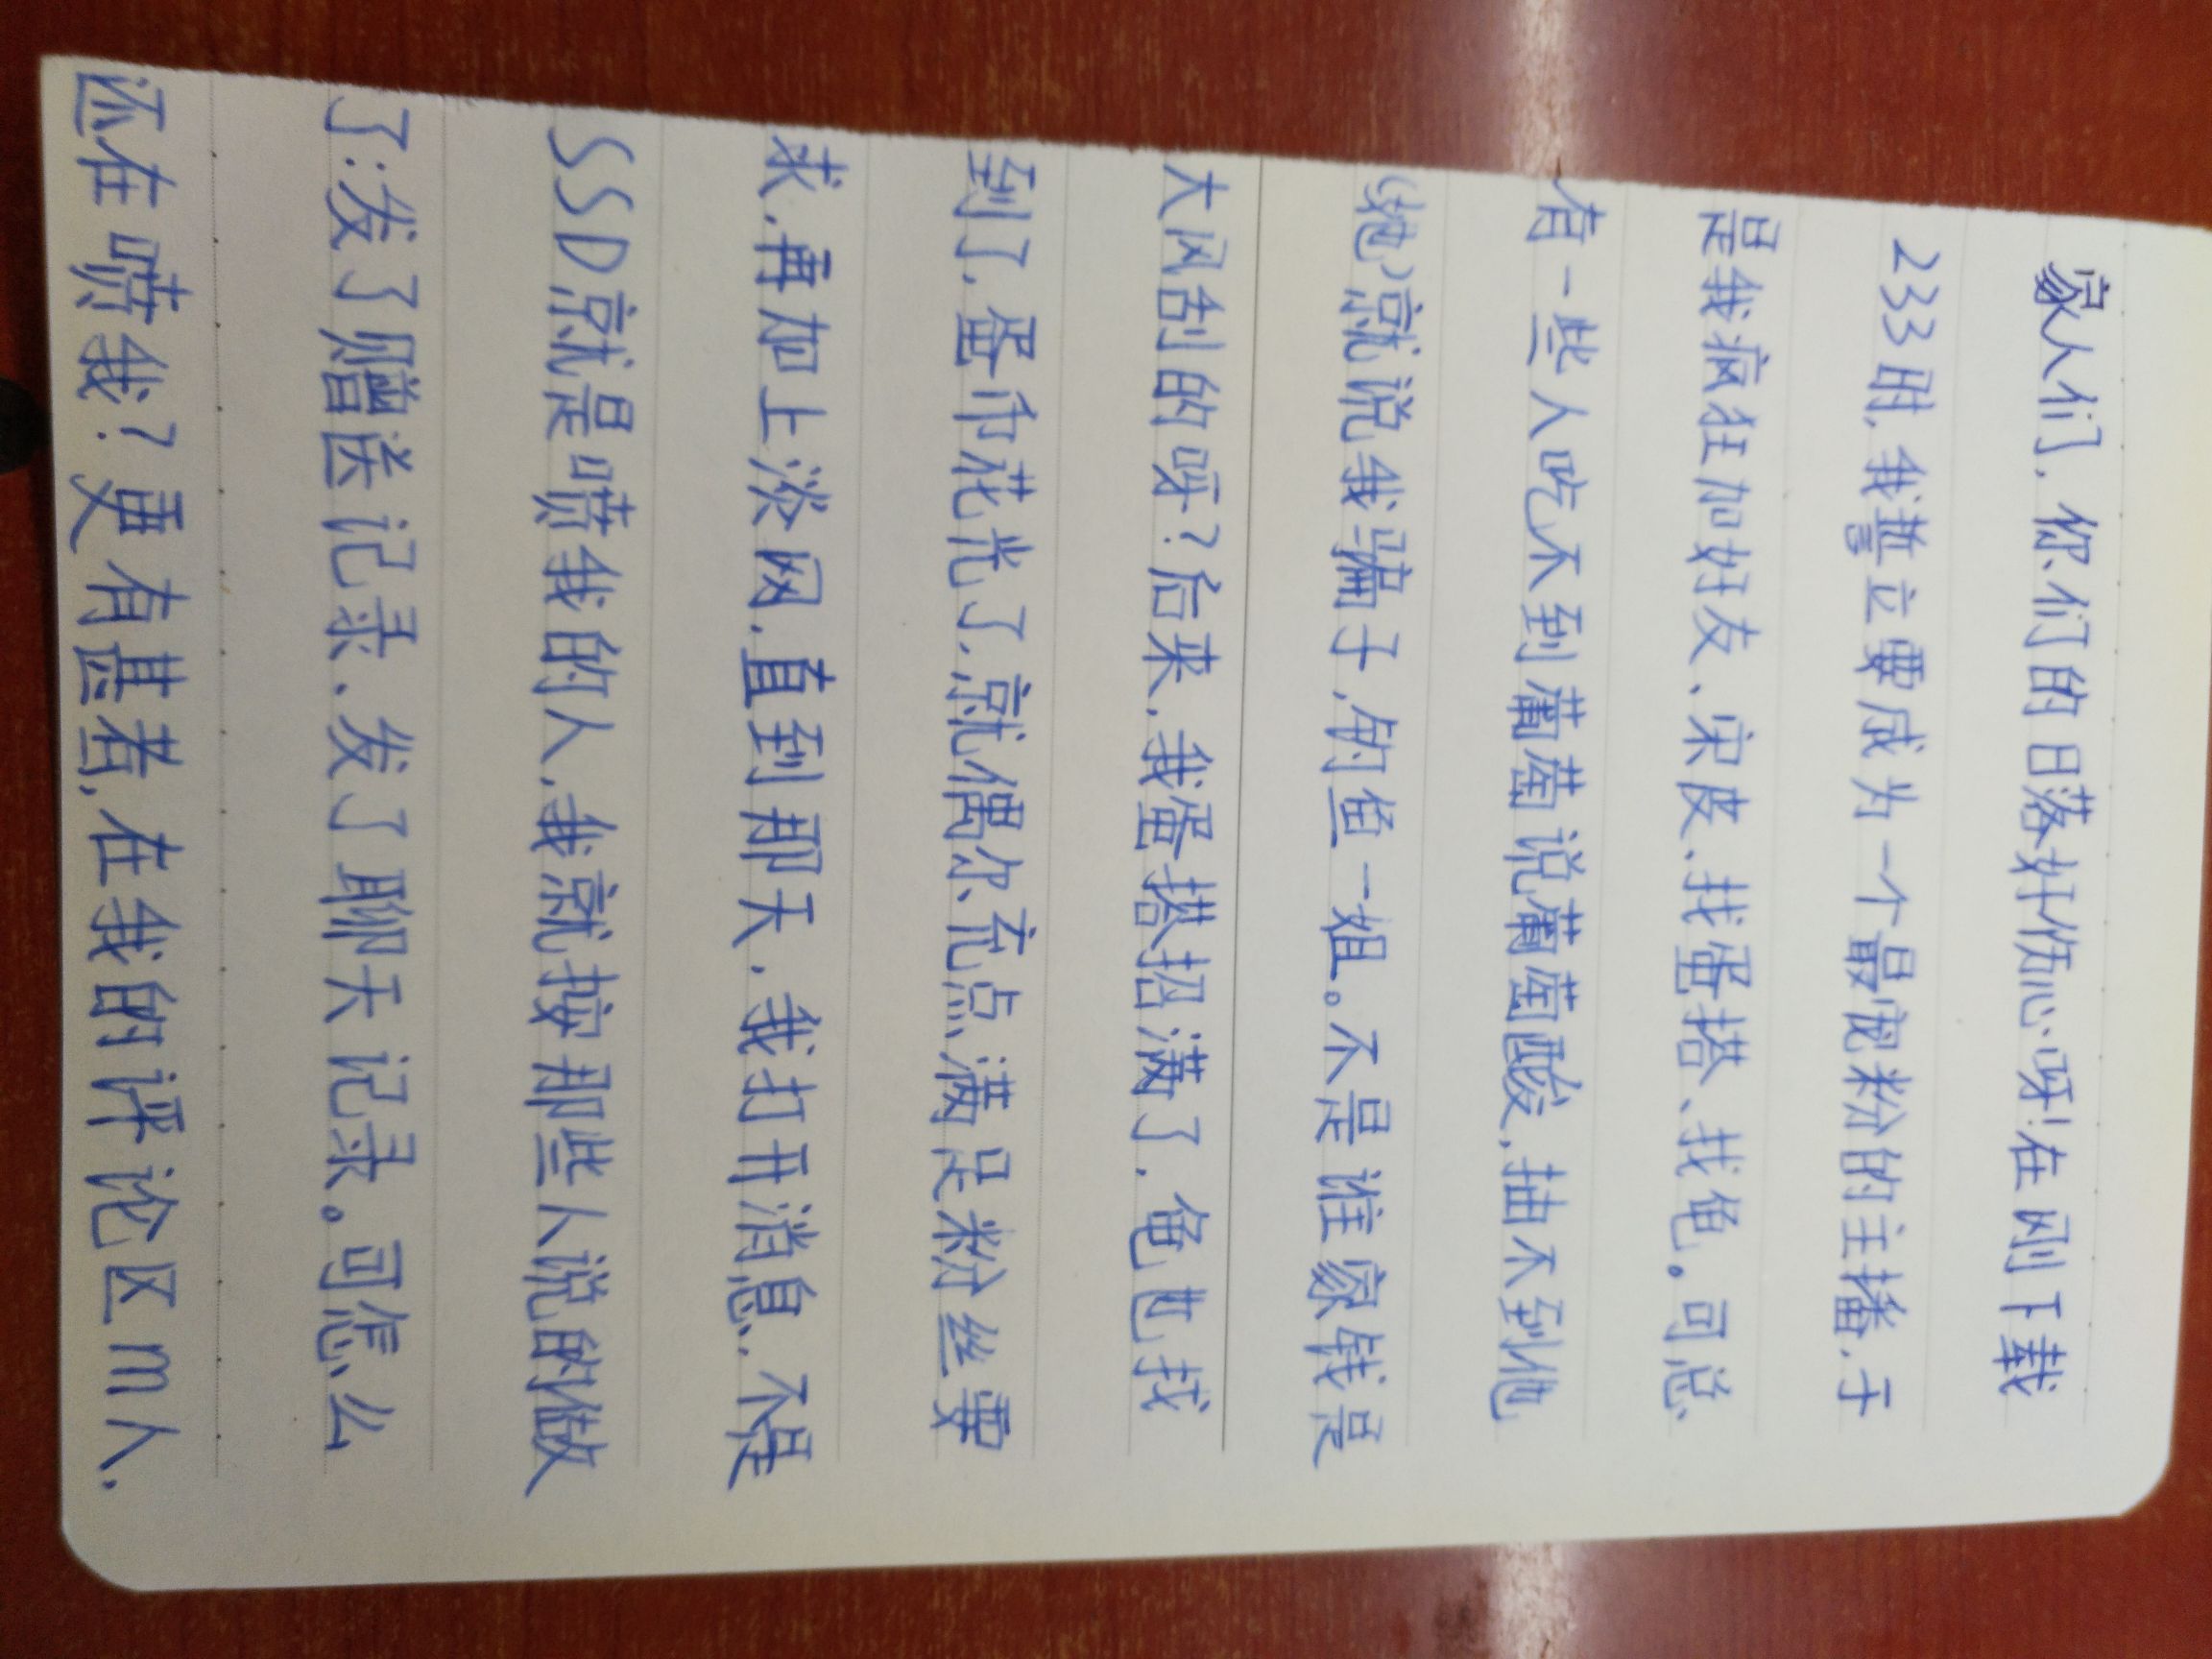 家人们，你们的日落好伤心呀!在刚下载
233时，我誓立要成为一个最宠粉的主播，于
是我疯狂加好友、宋皮、找蛋搭、找色。可总
有一些人吃不到葡萄说葡萄酸，抽不到他
(她)就说我骗子，钓鱼一姐。不是谁家钱是
大风刮的呀?后来，我蛋搭招满了，色也找
到了，蛋币花光了，就偶尔充点满足粉丝要
求，再加上淡网，直到那天，我打开消息，不是
SSD就是喷我的人，我就按那些人说的做
了:发了赠送记录、发了聊天记录。可怎么
还在喷我?更有甚者，在我的评论区m人，